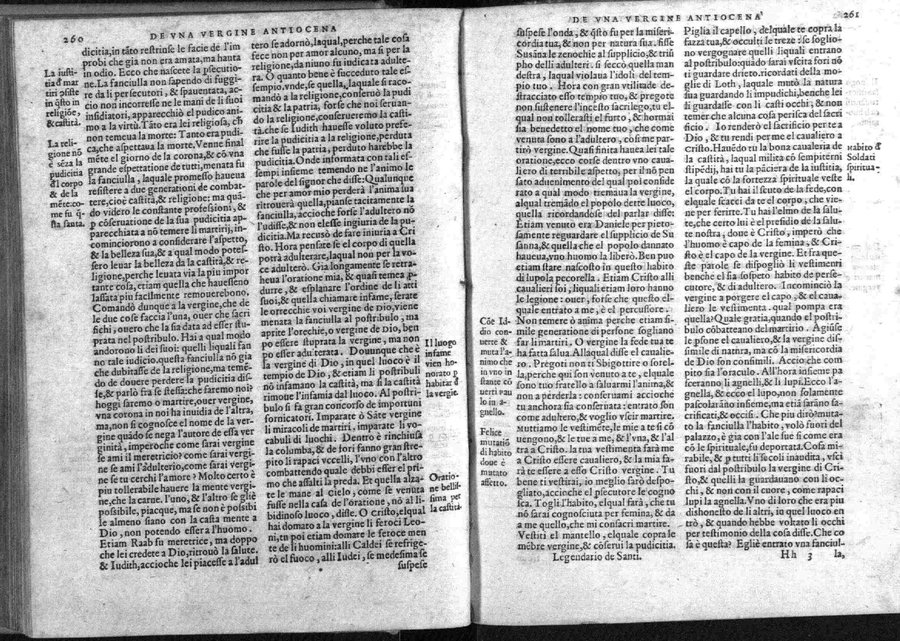 260
DE VNA VERGINE ANTIOCENA
La iusti-
tia d' mar
tiri cōsiste
in q̄sto in
religiōe,
& castità.
La reli-
gione nō
è sēza la
pudicitia
d'l corpo
& de la
mēte: co-
me fu q̄-
sta santa.
dicitia, in tāto restriuse le facie de l'im
probi che già non era amata, ma hauta
in odio. Ecco che nascete la psecutio-
ne. La fanciulla non sapendo di fuggi-
re da li persecutori, & spauentata, ac-
cio non incorresse ne le mani de li suoi
insidiatori, apparecchiò el pudico ani-
mo a la virtù. Tāto era lei religiosa, ch̄
non temeua la morte: Tanto era pudi
ca, che aspettaua la morte. Venne final
mēte el giorno de la corona, & cō vna
grande espettatione de tuti, menata fu
la fanciulla, laquale promesso haueua
resistere a due generationi de combat-
tere, cioè castità, & religione: ma quā-
do videro le constante professioni, &
p cōseruatione de la sua pudicitia ap-
parecchiata a nō temere li martirij, in-
comincioron a considerare l'aspetto,
& la bellezza sua, & a qual modo potes-
sero leuar la belleza da la castità, & re-
ligione, perche leuata via la piu impor
tante cosa, etiam quella che hauesseno
lassata piu facilmente remouerebono.
Comandò dunque a la vergine, che de
le due cose faccia l'una, ouer che sacri
fichi, ouero che la sia data ad esser stu-
prata nel postribulo. Hai a qual modo
andorono li dei suoi: quelli liquali fan
no tale iudicio. questa fanciulla nō gia
che dubitasse de la religione, ma temē-
do de douere perdere la pudicitia dis-
se, & parlò fra se stessa: che faremo noi:
hoggi saremo o martire, ouer vergine,
vna corona in noi ha inuidia de l'altra,
ma, non si cognosce el nome de la ver-
gine quādo se nega l'autore de essa ver
ginità, imperoche come sarai vergine
se ami il meretricio? come sarai vergi-
ne se ami l'adulterio, come sarai vergi-
ne se tu cerchi l'amore? Molto certo è
piu tollerabile hauere la mente vergi-
ne, che la carne. l'uno, & l'altro se gliè
possibile, piacque, ma se non è possibi
le almeno siano con la casta mente a
Dio, non potendo esser a l'huomo.
Etiam Raab fu meretrice, ma doppo
che lei credete a Dio, ritrouò la salute.
& Iudith, acciche lei piacesse a l'adul
tero se adornò, laqual, perche tale cosa
fece non per amor alcuno, ma sí per la
religione, da niuno fu iudicata adulte-
ra. O quanto bene è succeduto tale es-
sempio. vnde, se quella, laquale si raco-
mandò a la religione, conseruò la pudi
citia & la patria, forse che noi seruan-
do la religione, conseruaremo la casti-
tà. che se Iudith hauesse voluto prefe-
rire la pudicitia a la religione, perduta
che fusse la patria, perduto harebbe la
pudicitia. Onde informata con tali es-
sempi insieme temendo ne l'animo le
parole del signor che disse: Qualunque
che per amor mio perderà l'anima sua
ritrouerà quella, pianse tacitamente la
fanciulla, accioche forse l'adultero nō
l'udisse, & non elesse ingiuria de la pu-
dicitia. Ma recusò de fare iniuria a Cri
sto. Hora pensate se el corpo di quella
potrà adulterare, laqual non per la vo-
ce adulterò. Gia longamente se retra-
heua l'oratione mia, & quasi temea p
durre, & esplanare l'ordine de li atti
suoi, & quella chiamare infame, serate
le orecchie voi vergine de Dio, viene
menata la fanciulla al postribulo, ma
aprite l'orechie, o vergine de Dio, ben
po essere stuprata la vergine, ma non
po esser adulterata. Dounque che è
la vergine di Dio, in quel luoco è il
tempio de Dio, & etiam li postribuli
nō infamano la castità, ma sí la castità
rimoue l'infamia dal luoco. Al postri-
bulo si fa gran concorso de importuni
fornicatori. Imparate o Sāte vergine
li miracoli de martiri, imparate li vo-
cabuli di luochi. Dentro è rinchiusa
la columba, & de fori fanno gran stre-
pito li rapaci vccelli, l'uno con l'altro
combattendo quale debbi esser el pri-
mo che assalti la preda. Et quella alza-
te le mane al cielo, come se venuta
fusse nella casa de l'oratione, nō al li-
bidinoso luoco, disse. O Cristo, elqual
hai domato a la vergini li feroci Leo-
ni, tu poi etiam domare le feroce men
te de li huomini: alli Caldei se refrige-
rò el fuoco, alli Iudei, se medesima se
suspese
Il luogo
infame
vien ho-
norato p
habitar d'
la vergie.
Oratio-
ne bellis-
sima per
la castità.
261
DE VNA VERGINE ANTIOCENA
suspese l'onda, & q̄sto fu per la miseri-
cordia tua, & non per natura sua. fisse
Susāna le zenochie al supplicio, & triū
pho delli adulteri. si seccò, quella man
destra, laqual violaua l'idoli del tem-
pio tuo. Hora con gran vtilitade de-
stracciato essa tempio tuo, & pregote
non sustenere l'incesto sacrilego, tu el-
qual non tollerasti el furto, & hormai
sia benedetto el nome tuo, che come
venuta sono a l'adultero, così me par-
tirò vergine. Quasi finita haueа lei tale
oratione, ecco forse dentro vno caua-
liero di terribile aspetto, per il nō pen
sato aduenimento del qual poi conside
rato a qual modo tremaua la vergine,
alqual tremādo el popolo dette luoco,
quella ricordandose del parlar disse:
Etiam venuto era Daniele per pieto-
samente reguardare el supplicio de Su
sanna, & quella che el popolo dannato
haueua, vno huomo la liberò. Ben puo
etiam stare nascosto in questo habito
di lupola pecorella. Etiam Cristo alli
caualieri soi, liquali etiam loro hanno
le legione: ouer, forse che questo el-
quale entrato a me, è el percussore.
Non temere ò anima perche etiam si-
mile generatione di persone sogliano
far li martiri. O vergine la fede tua te
ha fatta salua. Alla qual disse el caualie-
ro. Pregoti non ti Sbigottire o sorel-
la, perche qui son venuto a te, elquale
sono tuo fratello a saluarmi l'anima, &
non a perderla: conseruami accioche
tu anchora sia conseruata: entrato son
come adultero, & voglio vscir martire.
Muttiamo le vestimēte, le mie a te si cō
uengono, & le tue a me, & l'vna, & l'al
tra a Cristo. la tua vestimenta farà me
a Cristo essere caualiero, & la mia fa-
rà te essere a esso Cristo vergine. Tu
bene ti vestirai, io meglio sarò despo-
gliato, accioche el pscutore le cogno-
sca. Togli l'habito, elqual farà, che tu
nō sarai cognosciuta per femina, & da
a me quello, che mi consacri martire.
Vestiti el mantello, elquale copra le
mēbre vergine, & cōserui la pudicitia.
Legendario de Santi.
Cōe Id-
dio con-
uerte &
muta l'a-
nimo che
in vno in
stante cō
uertì vn
lupo in a-
gnello.
Felice
mutatiō
di habito
doue è
mutato
affetto.
Piglia il capello, delquale te copra la
fazza tua, & occulti le treze: se soglio-
no vergognare quelli liquali entrano
al postribulo: quado sarai vscita fori nō
ti guardare drieto. ricordati della mo-
glie di Loth, laquale mutò la natura
sua guardando li impudichi, benche lei
li guardasse con li casti occhi; & non
temer che alcuna cosa perisca del sacri
ficio. Io renderò el sacrificio per te a
Dio, & tu rendi per me el caualiero a
Cristo. Hauēdo tu la bona caualeria de
la castità, laqual milita cō sempiterni
stipēdij, hai tu la pāciera de la iustitia,
la quale cō la fortezza spirituale veste
el corpo. Tu hai il scuto de la fede, con
elquale scacci da te el corpo, che vie-
ne per ferirte. Tu hai l'elmo de la salu-
te, che certo lui è el presidio de la salu
te nostra, doue è Cristo, imperò che
l'huomo è capo de la femina, & Cri-
sto è el capo de la vergine. Et fra que-
ste parole se dispogliò li vestimenti
benche el sia sospeto habito de perse-
cutore, & di adultero. Incominciò la
vergine a porgere el capo, & el caua-
liero le vestimenta. qual pompa era
quella? Quale gratia, quando el postri-
bulo cōbatteano del martirio. Agiūse
le psone el caualiero, & la vergine dis-
simile di natura, ma cō la misericordia
de Dio son consimili. Accioche com-
pito sia l'oraculo. All'hora insieme pa
sceranno li agnelli, & li lupi. Ecco l'a-
gnella, & ecco el lupo, non solamente
pascolarāno insieme, ma etiā sarāno sa-
crificati, & occisi. Che piu dirò? muta-
to la fanciulla l'habito, volò fuori del
palazzo, è gia con l'ale sue si come era
cō le spirituale, fu deportata. Cosa mi-
rabile, & p tutti li secoli inaudita, vscì
fuori dal postribulo la vergine di Cri-
sto, & quelli la guardauano con li oc-
chi, & non con il cuore, come rapaci
lupi la agnella. Vno di loro che era piu
dishonesto de li altri, in quel luoco en
trò, & quando hebbe voltato li occhi
per testimonio della cosa disse. Che co
sa è questa? Egliè entrato vna fanciul-
Hh 3 la,
Habito d'
Soldati
spiritua-
li.